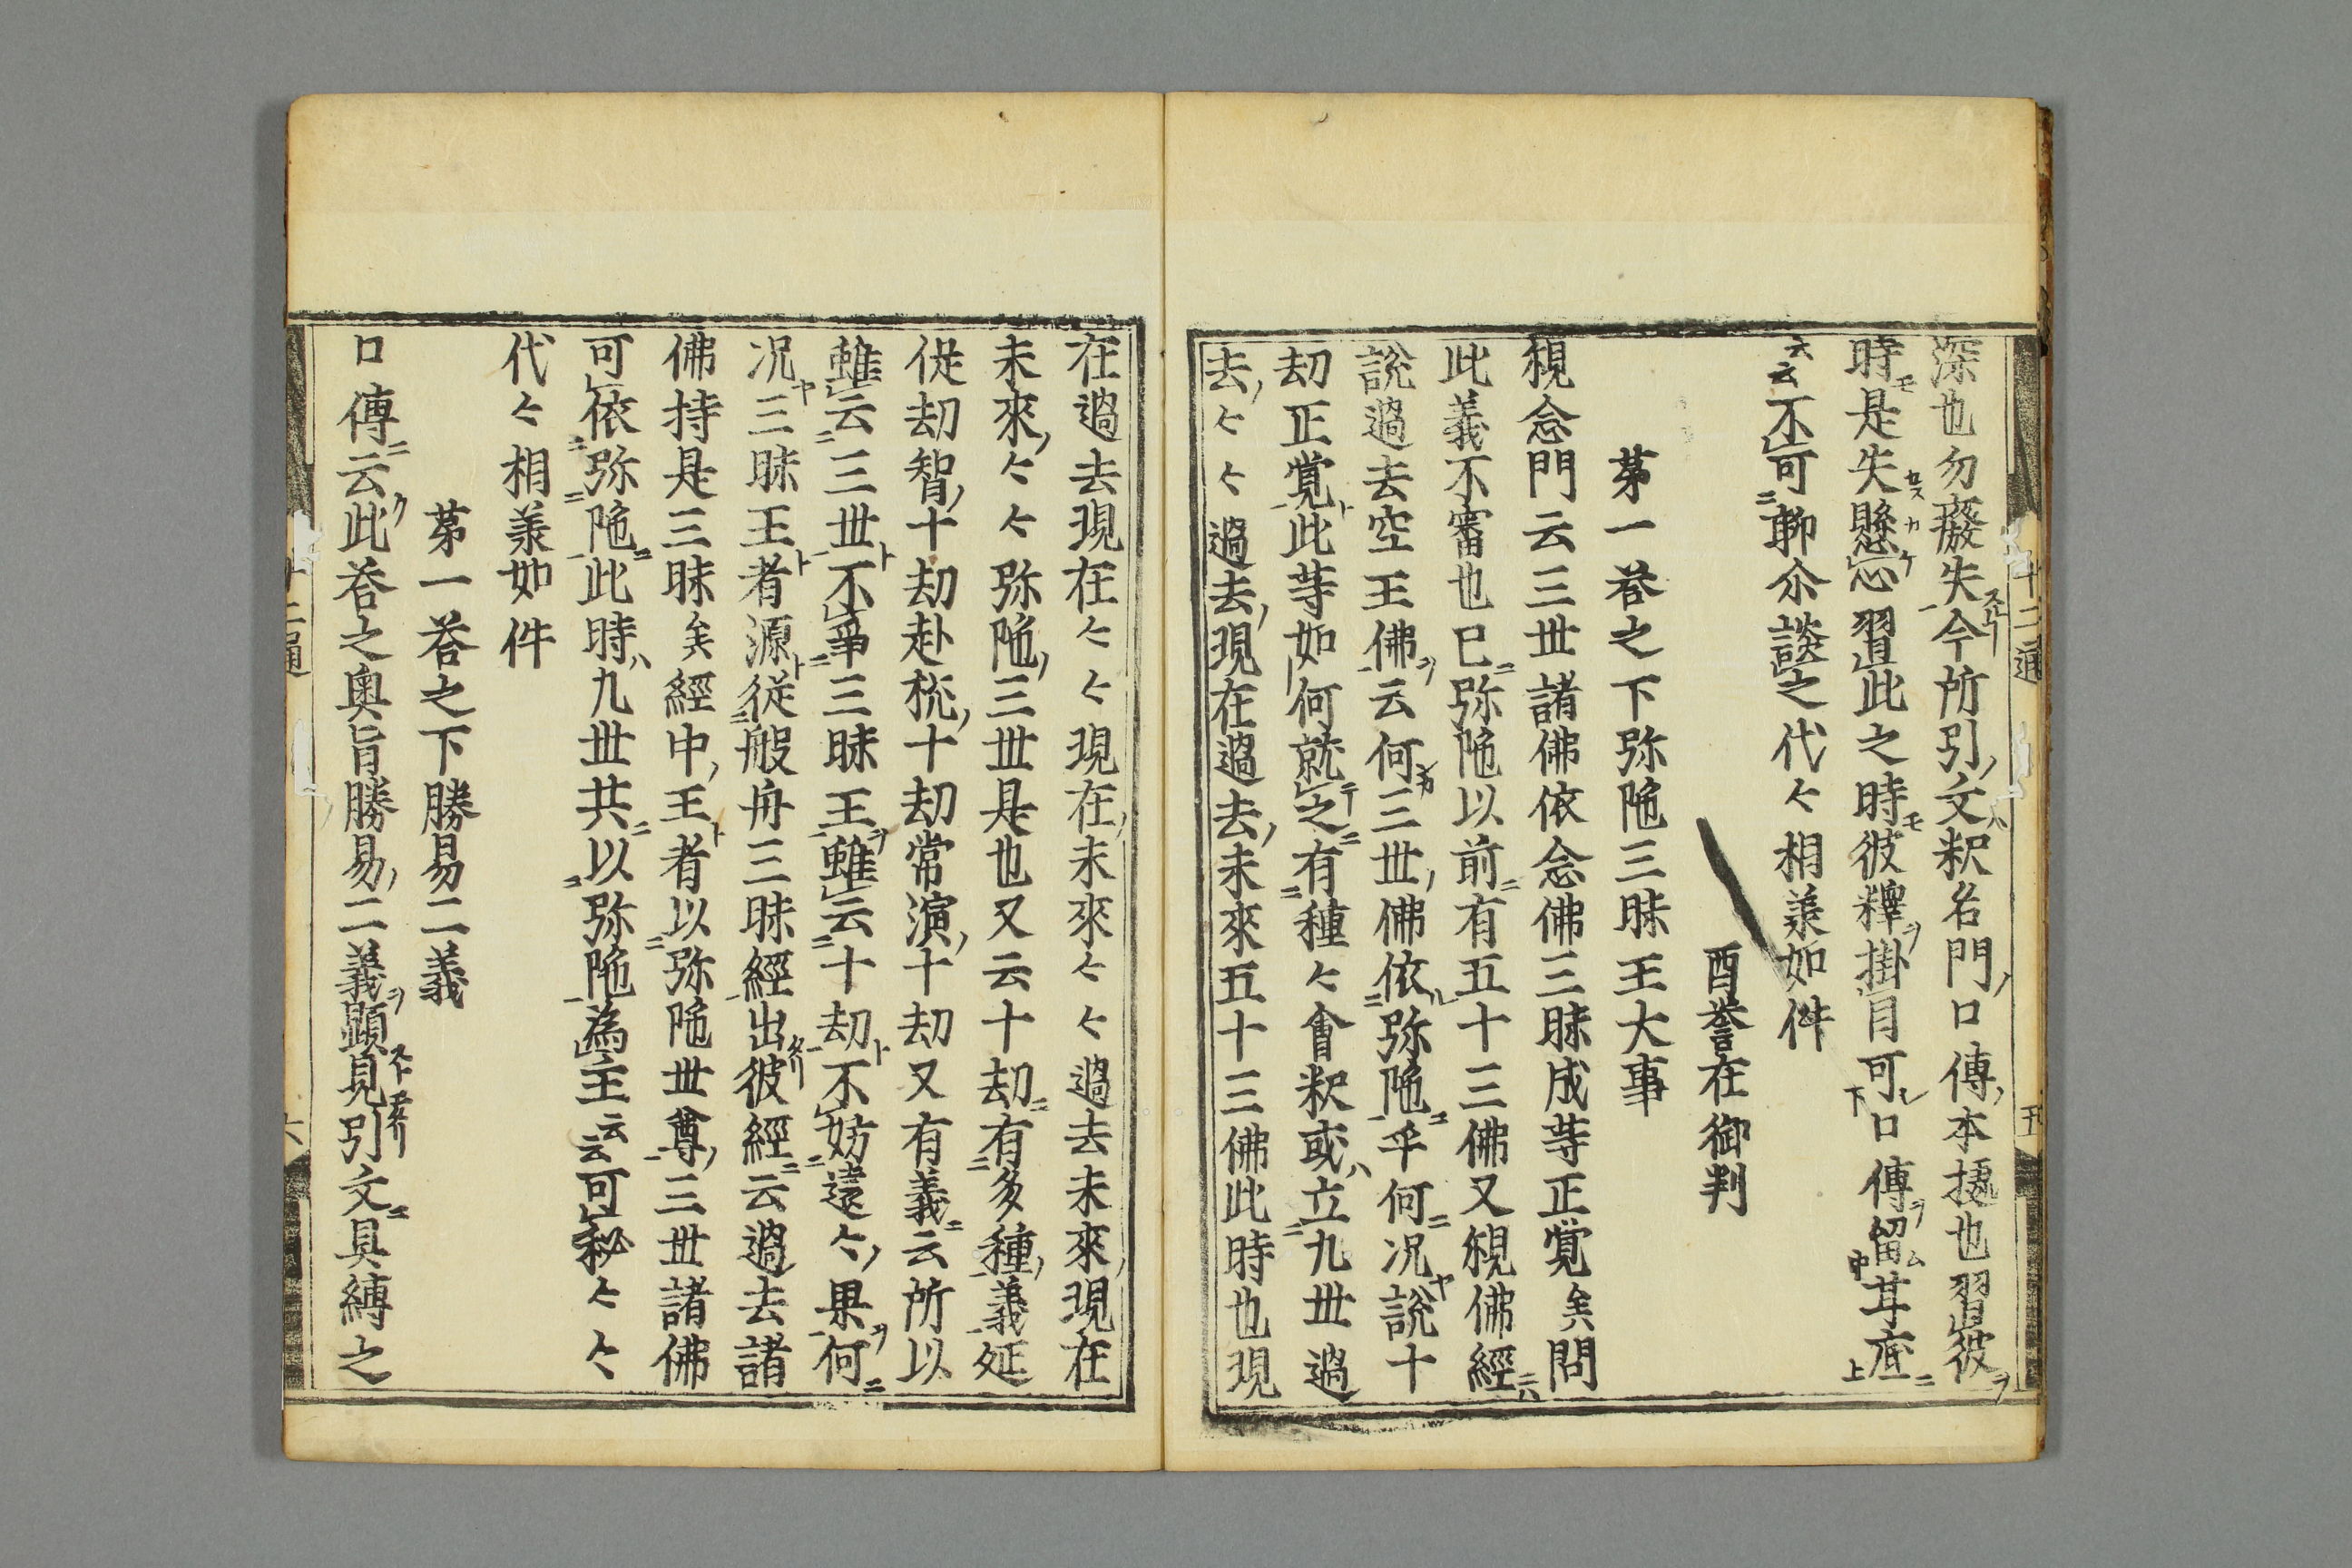 深也勿癈失今所引文釈名門口傳本拠也習彼
時是失懸心習此之時彼釋掛目可口傳留耳底
云云不可聊尒談之代々相羕如件
酉誉在御判
苐一荅之下弥陁三昧王大事
䙿念門云三丗諸佛依念佛三昧成䓁正覚矣問
此義不審也已弥陁以前有五十三佛又䙿佛經
說過去空王佛云何三丗佛依弥陁乎何况說十
刧正覚此䓁如何就之有種々會釈或立九丗過
去々々過去現在過去未來五十三佛此時也現
在過去現在々々現在未來々々過去未來現在
未來々々弥陁三丗是也又云十刧有多種義延
促刧智十刧赴梳十刧常演十刧又有義云所以
雖云三丗不爭三昧王雖云十刧不妨遠々果何
况三昧王者源從般舟三昧經出彼經云過去諸
佛持是三昧矣經中王者以弥陁丗尊三丗諸佛
可依弥陁此時九丗共以弥陁為主云云可秘々々
代々相羕如件
苐一荅之下勝易二義
口傳云此荅之奧旨勝易二義顕見引文具縛之
十二通
五
六